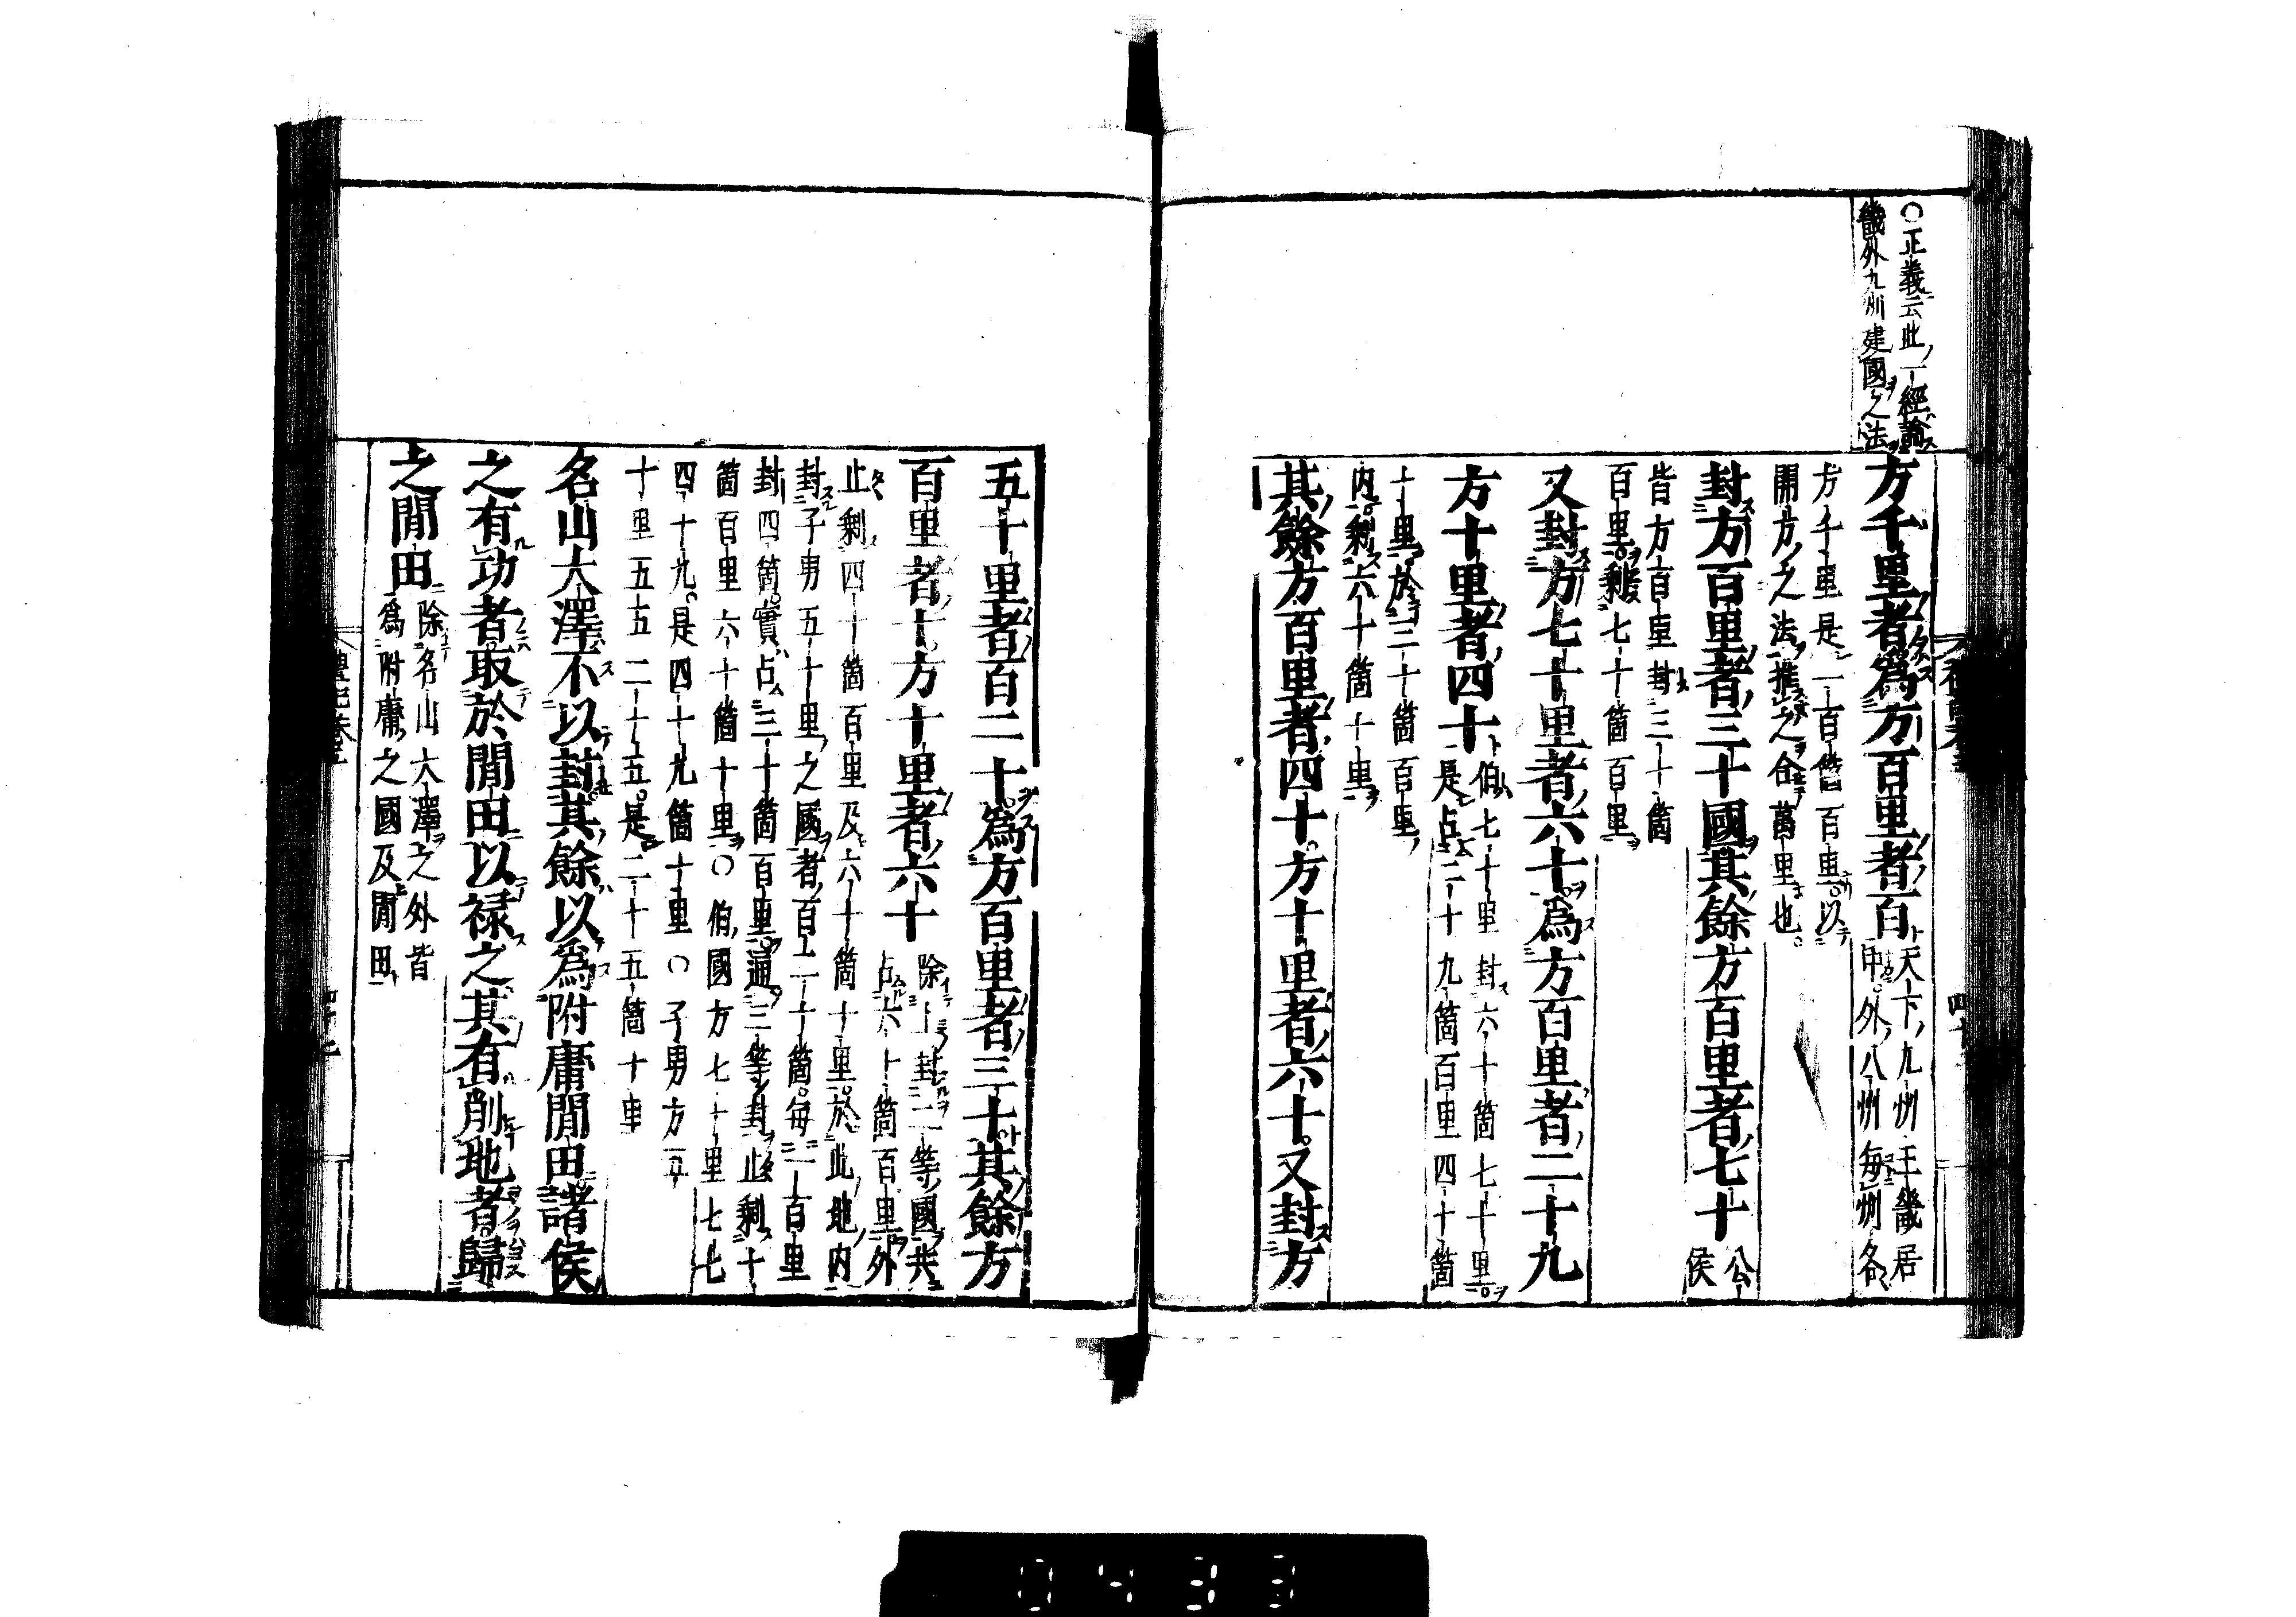 ○正義云此一經論
畿外九州建國之法
方千里者爲方百里者百
天下九州王畿居
中外八州每州各
方千里是一百箇百里以
開方之法推之合萬里也
封方百里者三十國其餘方百里者七十
公
侯
皆方百里封三十箇
百里剩七十箇百里
又封方七十里者六十爲方百里者二十九
方十里者四十
伯七十里封六十箇七十里
是占二十九箇百里四十箇
十里於三十箇百里
内剩六十箇十里
其餘方百里者四十方十里者六十又封方
五十里者百二十爲方百里者三十其餘方
百里者十方十里者六十
除上封二等國共
占六十箇百里外
止剩四十箇百里及六十箇十里於此地内
封子男五十里之國者百二十箇每一百里
封四箇實占三十箇百里通三等封止剩十
箇百里六十箇十里○伯國方七十里七七
四十九是四十九箇十里○子男方五
十里五五二十五是二十五箇十里
名山大澤不以封其餘以爲附庸閒田諸侯
之有功者取於閒田以祿之其有削地者歸
之閒田
除名山大澤之外皆
爲附庸之國及閒田
禮記卷三
0433